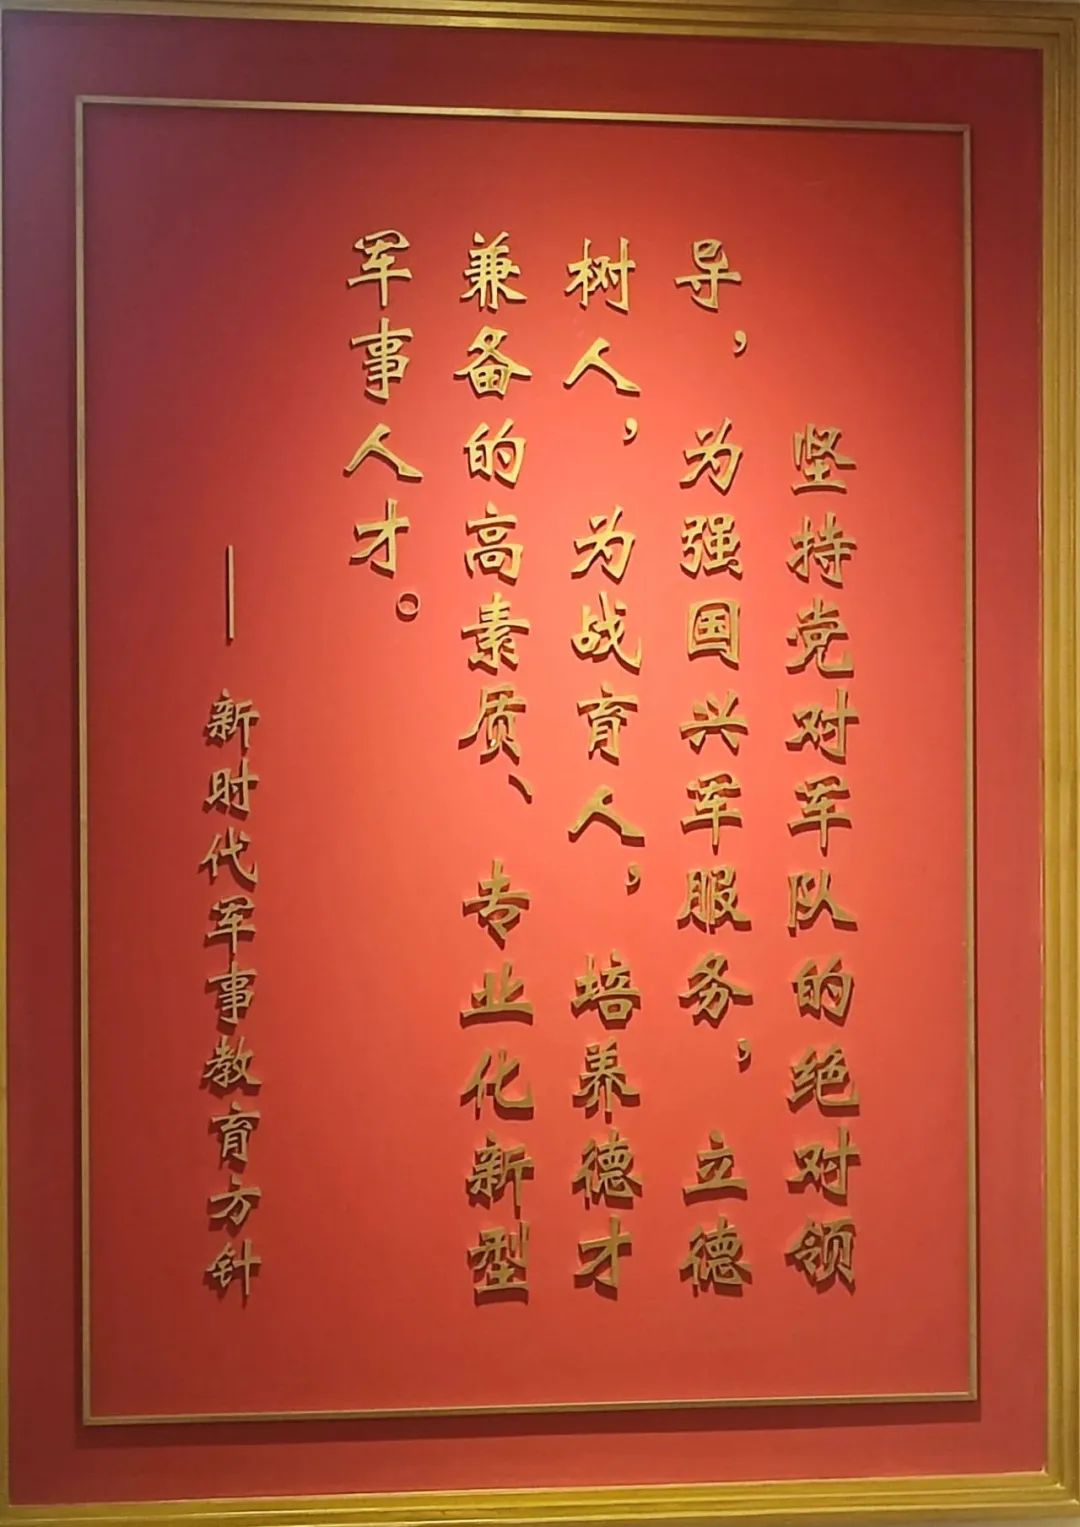 坚持党对军队的绝对领
导，为强国兴军服务，立德
树人，为战育人，培养德才
兼备的高素质、专业化新型
军事人才。
—新时代军事教育方针